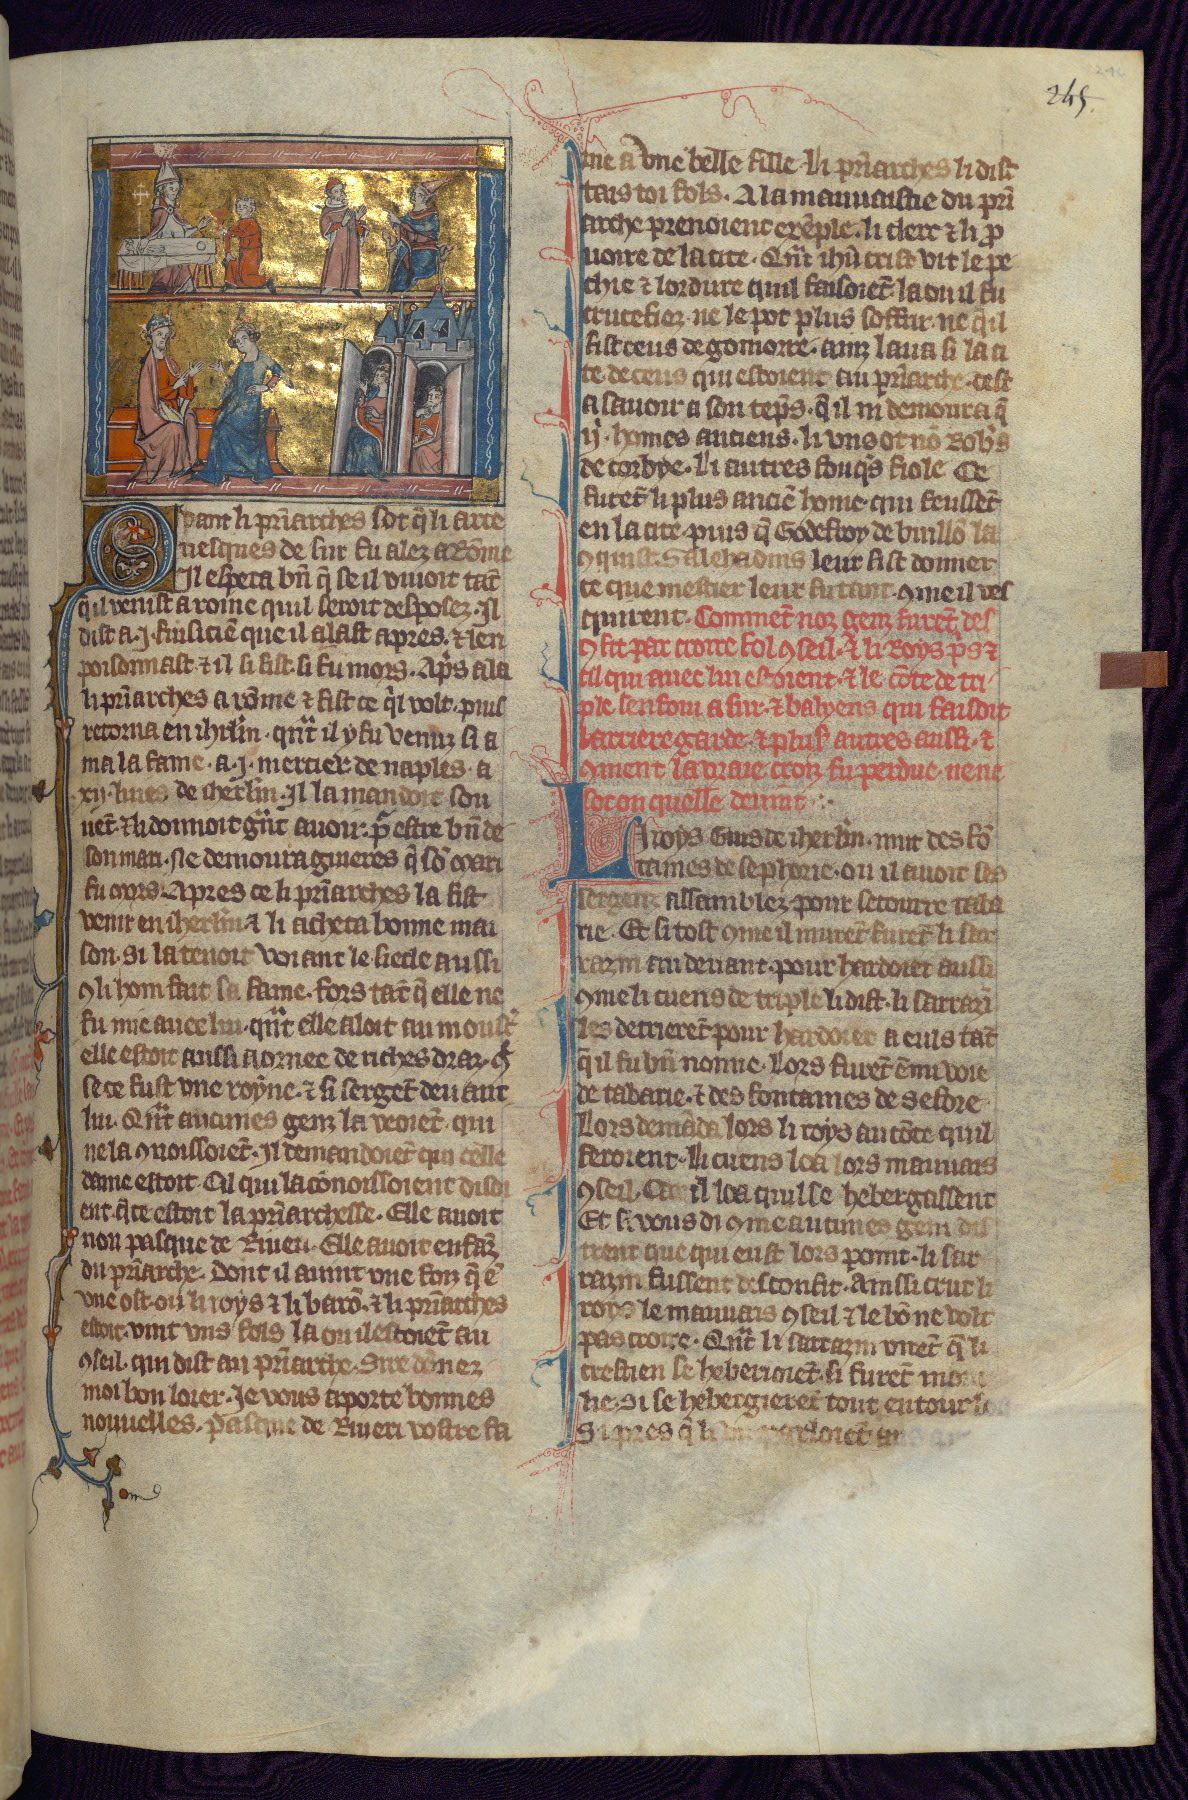 245.
Quant li pr̃iarches sot q̃ li arce
uesques de sur fu alez a Rõme
Il espera bñ q̃ se il viuoit tãt
qil venist a rome quil seroit desposez. Il
dist a .j. fuisiciẽ que il alast apres. ⁊ len
poisonnast ⁊ il si fist. si fu mors. Ap̃s ala
li pr̃iarches a rõme ⁊ fist ce q̃l volt. puis
retorna en ihrl̃m. qñt il y fu venuz si a
ma la fame. a .j. mercier de naples. a
xij. liues de iherl̃m. Il la mandoit sou
uẽt. ⁊ li donnoit gñt auoir. p̃ estre bñ de
son mari. Ne demoura guieres q̃ sõ mari
fu mors. Apres ce li pr̃iarches la fist
venir en iherl̃m ⁊ li acheta bonne mai
son. Si la tenoit voiant le siecle aussi
9 li hom fait sa fame. fors tãt q̃ elle ne
fu mie auec lui. qñt elle aloit au moustr̃
elle estoit aussi aornee de riches dras. 9
se ce fust vne royne. ⁊ si sergẽt deuant
lui. Qñt aucunes genz la veoiẽt. qui
ne la 9noissoiẽt. Il demandoiẽt qui celle
dame estoit. Cil qui la cõnoissoient disoi
ent. q̃ ce estoit la pr̃iarchesse. Elle auoit
non pasque de Riueri. Elle auoit enfãz
du pr̃iarche. Dont il auint vne foiz q̃ ẽ
vne ost. ou li roys ⁊ li barõ. ⁊ li pr̃iarches
estoit. vint vns fols la ou il estoiẽt au
9seil. qui dist au pr̃iarche. Sire dõnez
moi bon loier. Ie vous aporte bonnes
nouuelles. Pasque de Riueri vostre fa
me a vne belle fille. Li pr̃iarches li dist
tais toi fols. A la mauuaistie du pr̃i
arche prenoient exẽple. li clerc ⁊ li p
uoire de la cite. Qñt ihũ crist vit le pe
chie ⁊ lordure quil faisoiẽt la ou il fu
crucefiez. ne le pot plus soffrir. ne q̃l
fist ceus de gomorre. ainz laua si la ci
te de ceus qui estoient au pr̃iarche. cest
a sauoir a son tẽps. q̃ il ni demoura q̃
ij. homes anciens. li vns ot nõ Rob̃s
de corbye. Li autres fouq̃s fiole Ce
furẽt li plus anciẽ home qui feussẽt
en la cite. puis q̃ Godefroy de buillõ la
9quist. Salehadins leur fist donner
ce que mestier leur fu tant. 9me il ves
quirent. Commẽt noz genz furẽt des
9fit par croire fol 9seil. ⁊ li Roys p̃s ⁊
cil qui auec lui estoient. ⁊ le cõte de tri
ple senfoui a sur. ⁊ balyens qui faisoit
larriere garde. ⁊ plus᷒ autres aussi. ⁊
9ment la vraie croiz fu perdue. ne ne
sot on quelle deuint.
Li roys Guis de iherl̃m. mut des fõ
taines de sephorie. ou il auoit ses
sergenz assamblez pour secourre taba
rie. Et si tost 9me il murẽt furẽt li sar
razin au deuant. pour hardoier aussi
9me li cuens de triple li dist. li sarrazĩ
les detrierẽt pour hardoier a euls tãt
q̃ il fu bñ nonne. Lors furẽt ẽmi voie
de tabarie. ⁊ des fontaines de Sefore
Lors demãda lors li roys au cõte quil
feroient. Li cuens loa lors mauuais
9seil. Car il loa quil se hebergassent
Et si vous di 9me aucunes gent dis
trent que qui eust lors point. li sar
razin fussent desconfit. Ainssi crut li
roys le mauuais 9seil ⁊ le bõ ne volt
pas croire. Qñt li sarrazin virẽt q̃ li
crestien se heberioiẽt. si furẽt
lie. Si se hebergierẽt tout entour
Si pres q̃ li